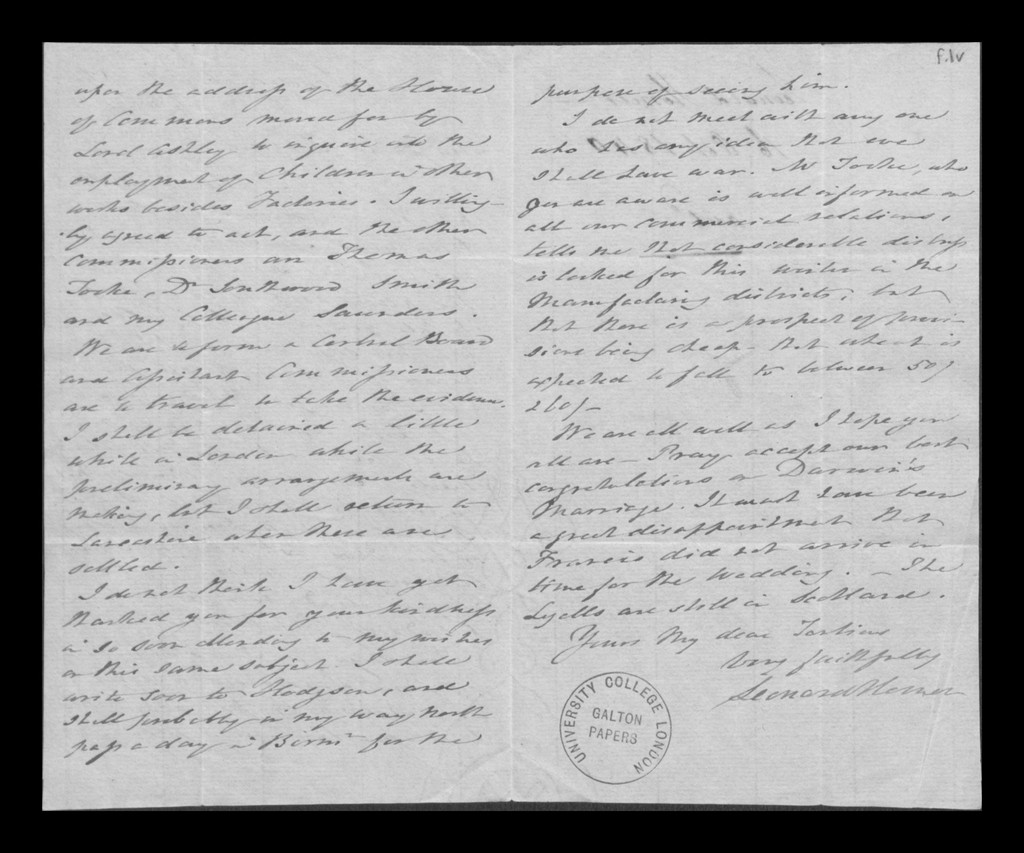 f.1v
upon the address of the House
of Commons moved for by
Lord Ashley to inquire into the
employment of Children in other
works besides Factories. I willing-
-ly agreed to act, and the other
Commissioners are Thomas
Tooke, Dr Southwood Smith
and my Colleague Saunders.
We are to form a Central Board
and Assistant Commissioners
are to travel to take the evidence.
I shall be detained a little
while in London while the
preliminary arrangements are
making, but I shall return to
Lancashire when these are
settled.
I do not think I have yet
thanked you for your kindness
in so soon attending to my wishes
on this same subject. I shall
write soon to Hodgson, and
shall probably in my way North
pass a day in Birmm for the
purpose of seeing him.
I do not meet with any one
who has any idea that we
shall have war. Mr Tooke, who
you are aware is well informed on
all our commercial relations,
tells me that considerable distress
is looked for this winter in the
Manufacturing districts, but
that there is a prospect of provi-
sions being cheap - that wheat is
expected to fall to between 50/
& 60/-
We are all well as I hope you
all are - Pray accept our best
congratulations on Darwin's
Marriage. It must have been
a great disappointment that
Francis did not arrive in
time for the Wedding. - The
Lyells are still in Scotland.
Yours My dear Tertius
Very faithfully
Leonard Horner
UNIVERSITY COLLEGE LONDON
GALTON
PAPERS